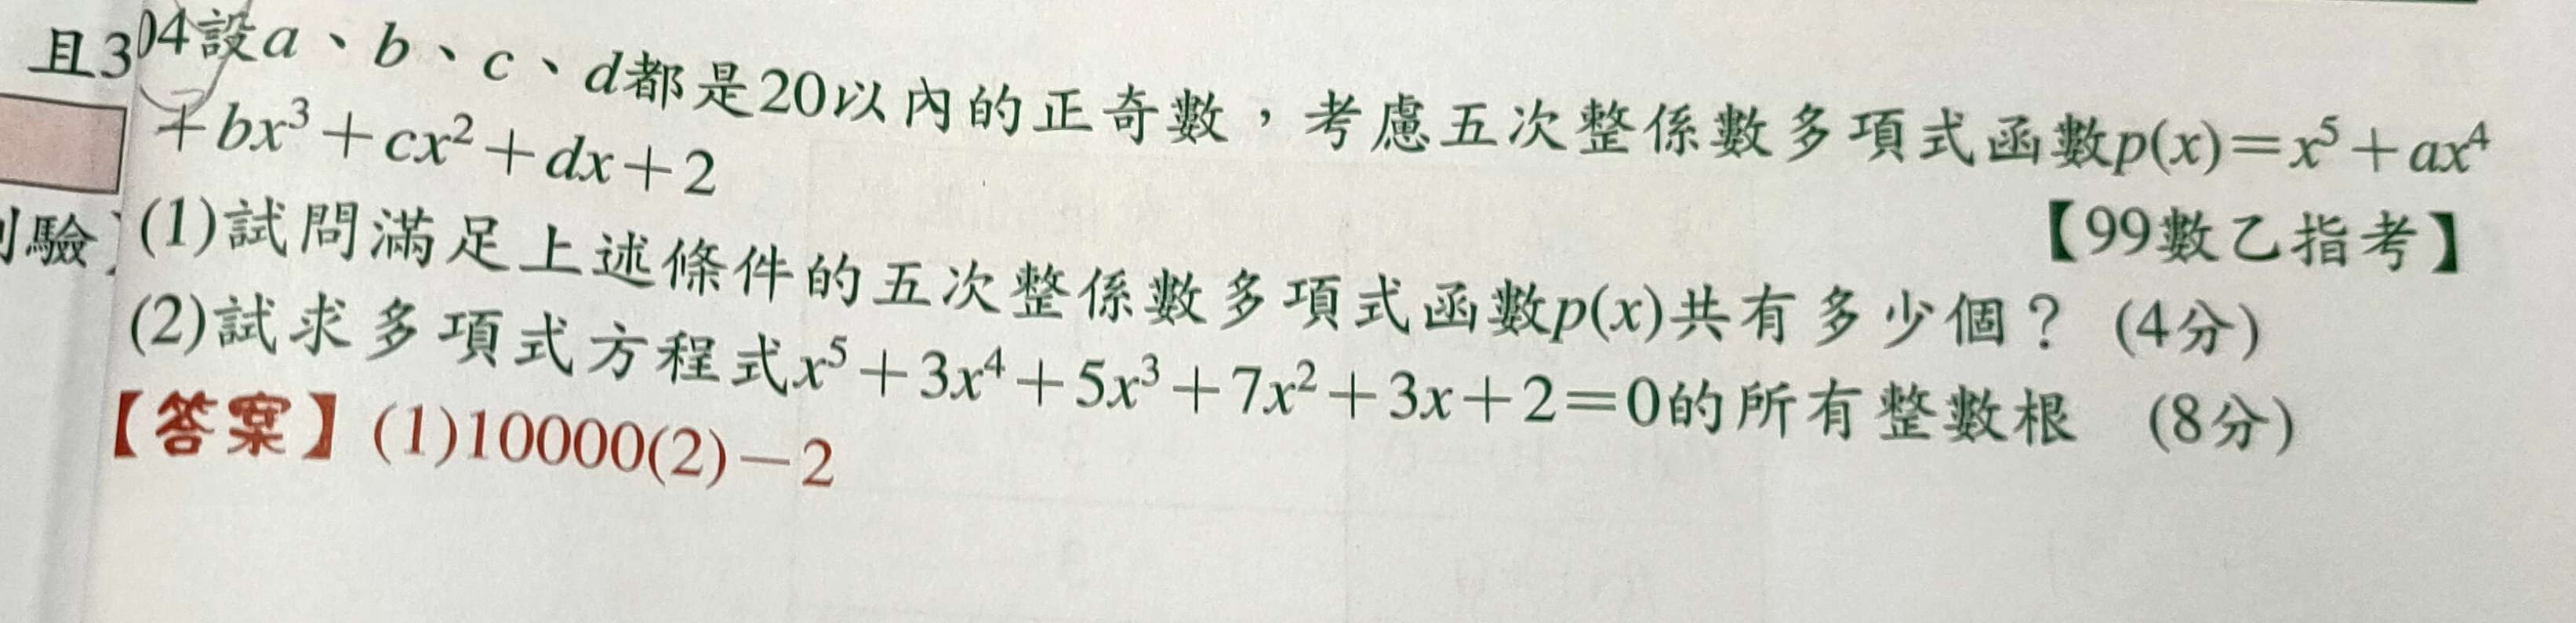 且3
04設a、b、c、d都是20以內的正奇數，考慮五次整係數多項式函數p(x)=x⁵+ax⁴
+bx³+cx²+dx+2
【99數乙指考】
驗
(1)試問滿足上述條件的五次整係數多項式函數p(x)共有多少個？ (4分)
(2)試求多項式方程式x⁵+3x⁴+5x³+7x²+3x+2=0的所有整數根 (8分)
【答案】(1)10000(2)-2